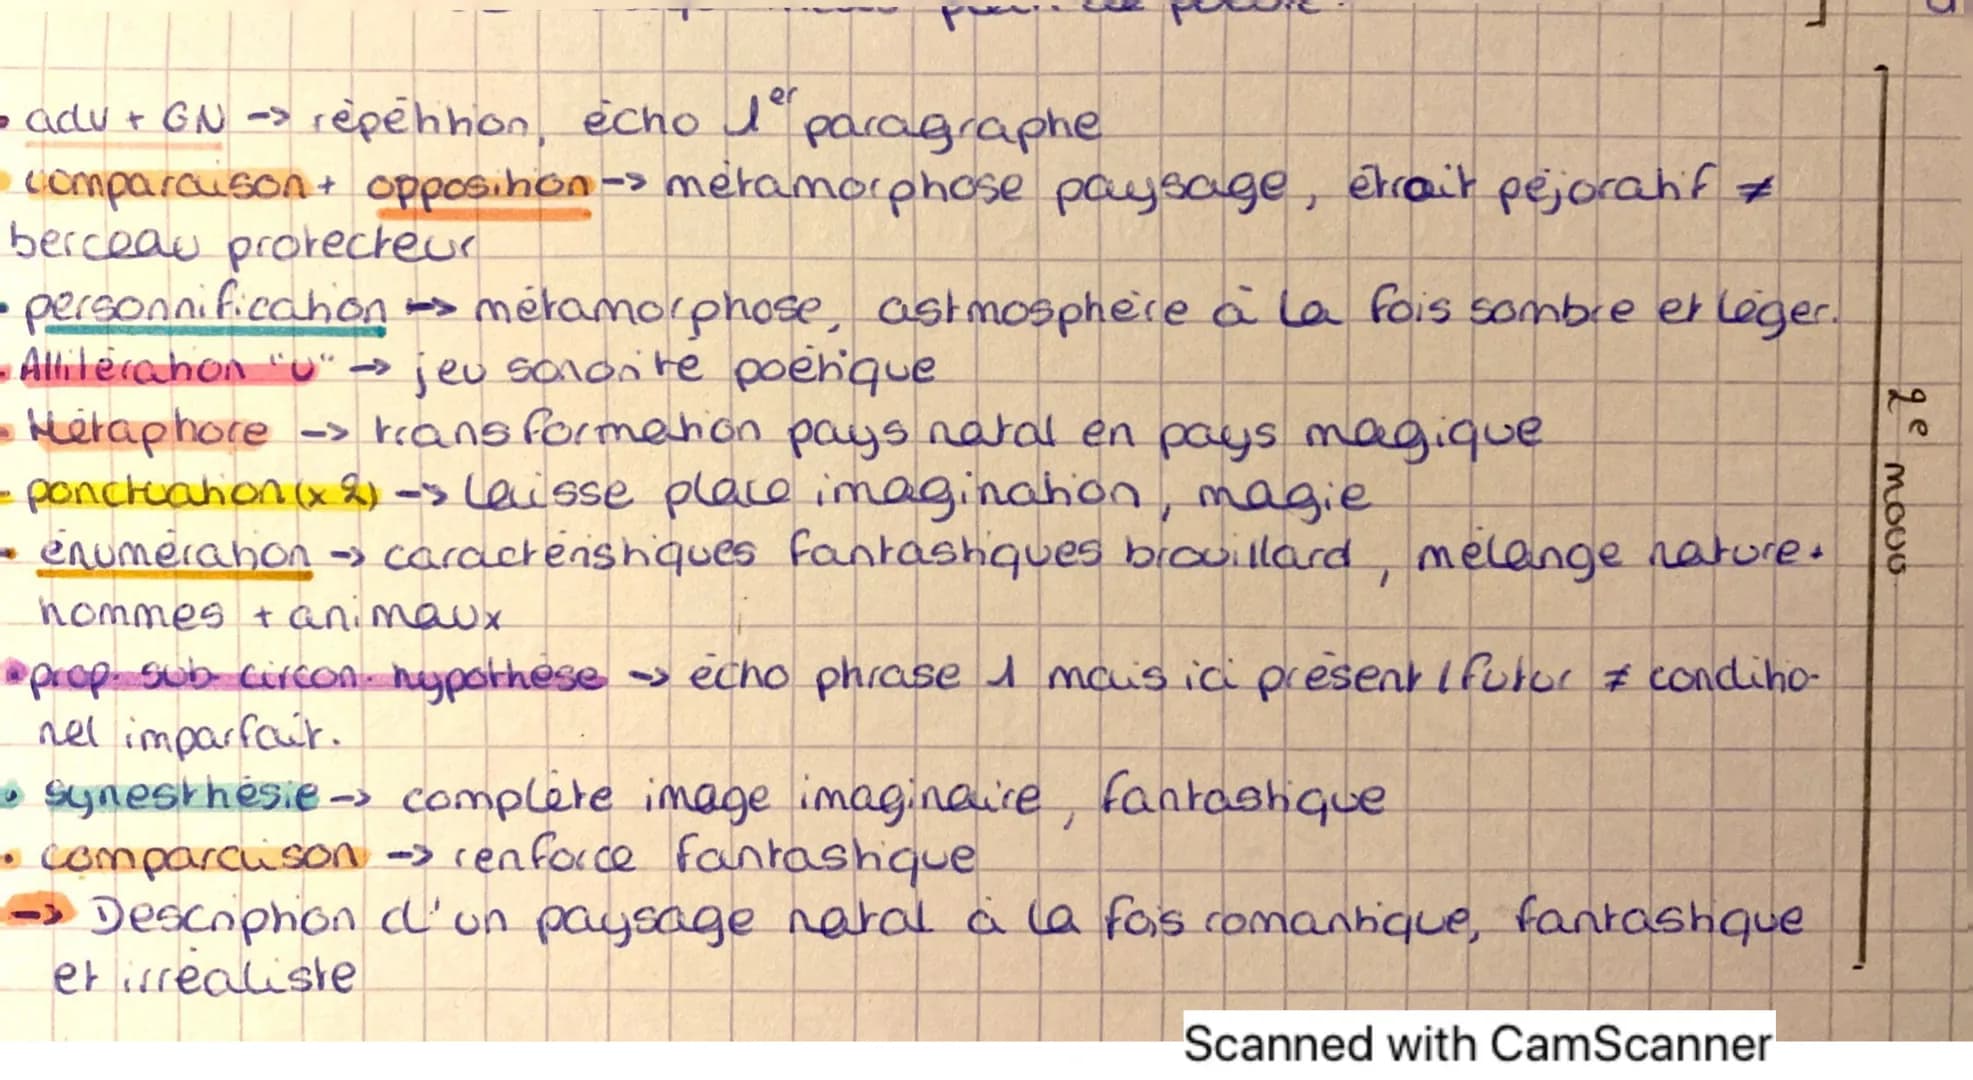 • adv + GN -> répétition, écho 1er paragraphe
• comparaison + opposition -> métamorphose paysage, étroit péjoratif ≠
berceau protecteur
• personnification -> métamorphose, astmosphère à la fois sombre et léger.
• Allitération "v" -> jeu sonorité poétique
• Métaphore -> transformation pays natal en pays magique
- ponctuation (x2) -> laisse place imagination, magie
• énumération -> caractéristiques fantastiques brouillard, mélange nature +
hommes + animaux
• prop. sub circon. hypothèse -> écho phrase 1 mais ici présent / futur ≠ conditio-
nel imparfait.
• synesthésie -> complète image imaginaire, fantastique
• comparaison -> renforce fantastique
-> Description d'un paysage natal à la fois romantique, fantastique
et irréaliste
2e mouv.
Scanned with CamScanner